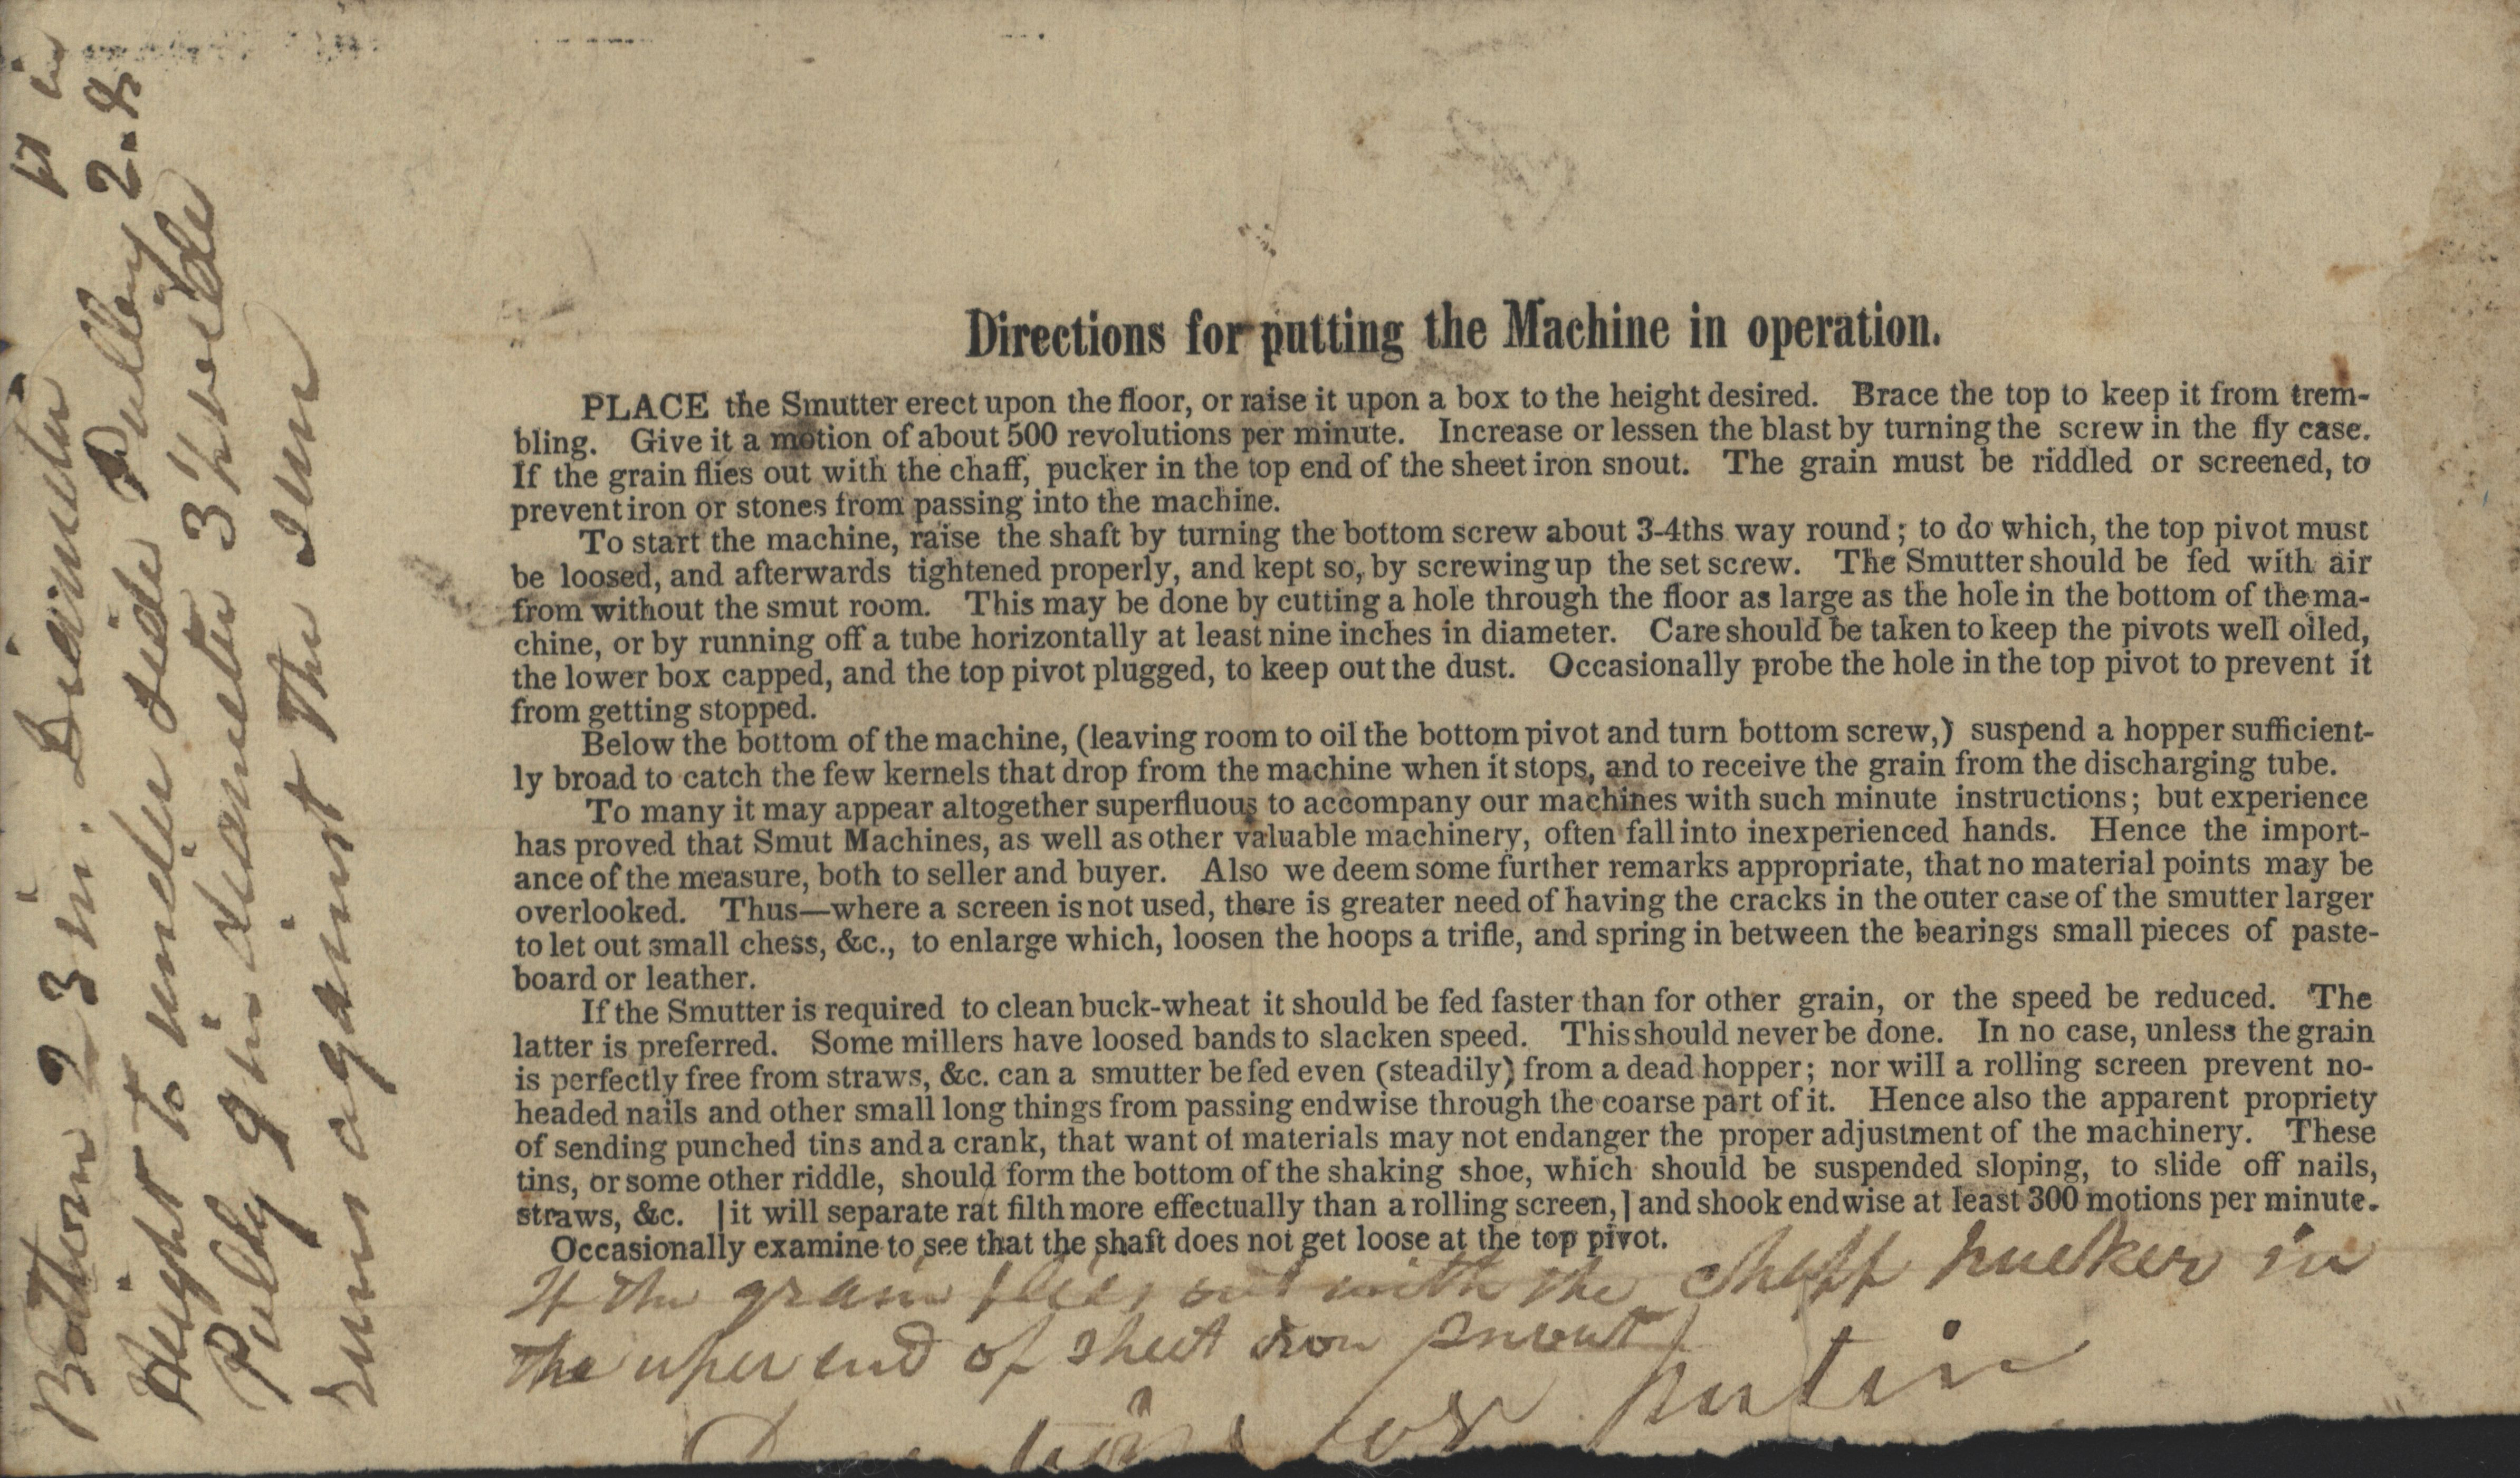 Directions for putting the Machine in operation.
PLACE the Smutter erect upon the floor, or raise it upon a box to the height desired. Brace the top to keep it from trem-
bling. Give it a motion of about 500 revolutions per minute. Increase or lessen the blast by turning the screw in the fly case.
If the grain flies out with the chaff, pucker in the top end of the sheet iron snout. The grain must be riddled or screened, to
prevent iron or stones from passing into the machine.
To start the machine, raise the shaft by turning the bottom screw about 3-4ths way round; to do which, the top pivot must
be loosed, and afterwards tightened properly, and kept so, by screwing up the set screw. The Smutter should be fed with air
from without the smut room. This may be done by cutting a hole through the floor as large as the hole in the bottom of the ma-
chine, or by running off a tube horizontally at least nine inches in diameter. Care should be taken to keep the pivots well oiled,
the lower box capped, and the top pivot plugged, to keep out the dust. Occasionally probe the hole in the top pivot to prevent it
from getting stopped.
Below the bottom of the machine, (leaving room to oil the bottom pivot and turn bottom screw,) suspend a hopper sufficient-
ly broad to catch the few kernels that drop from the machine when it stops, and to receive the grain from the discharging tube.
To many it may appear altogether superfluous to accompany our machines with such minute instructions; but experience
has proved that Smut Machines, as well as other valuable machinery, often fall into inexperienced hands. Hence the import-
ance of the measure, both to seller and buyer. Also we deem some further remarks appropriate, that no material points may be
overlooked. Thus—where a screen is not used, there is greater need of having the cracks in the outer case of the smutter larger
to let out small chess, &c., to enlarge which, loosen the hoops a trifle, and spring in between the bearings small pieces of paste-
board or leather.
If the Smutter is required to clean buck-wheat it should be fed faster than for other grain, or the speed be reduced. The
latter is preferred. Some millers have loosed bands to slacken speed. This should never be done. In no case, unless the grain
is perfectly free from straws, &c. can a smutter be fed even (steadily) from a dead hopper; nor will a rolling screen prevent no-
headed nails and other small long things from passing endwise through the coarse part of it. Hence also the apparent propriety
of sending punched tins and a crank, that want of materials may not endanger the proper adjustment of the machinery. These
tins, or some other riddle, should form the bottom of the shaking shoe, which should be suspended sloping, to slide off nails,
straws, &c. [it will separate rat filth more effectually than a rolling screen,] and shook endwise at least 300 motions per minute.
Occasionally examine to see that the shaft does not get loose at the top pivot.
If the grain flies out with the chaff pucker in
the uper end of sheet iron snout
for putin
Bottom 23 in. Diameter in
Hight to under side Pulley 2-8
Pully 9 in diameter 3½
runs against the sun